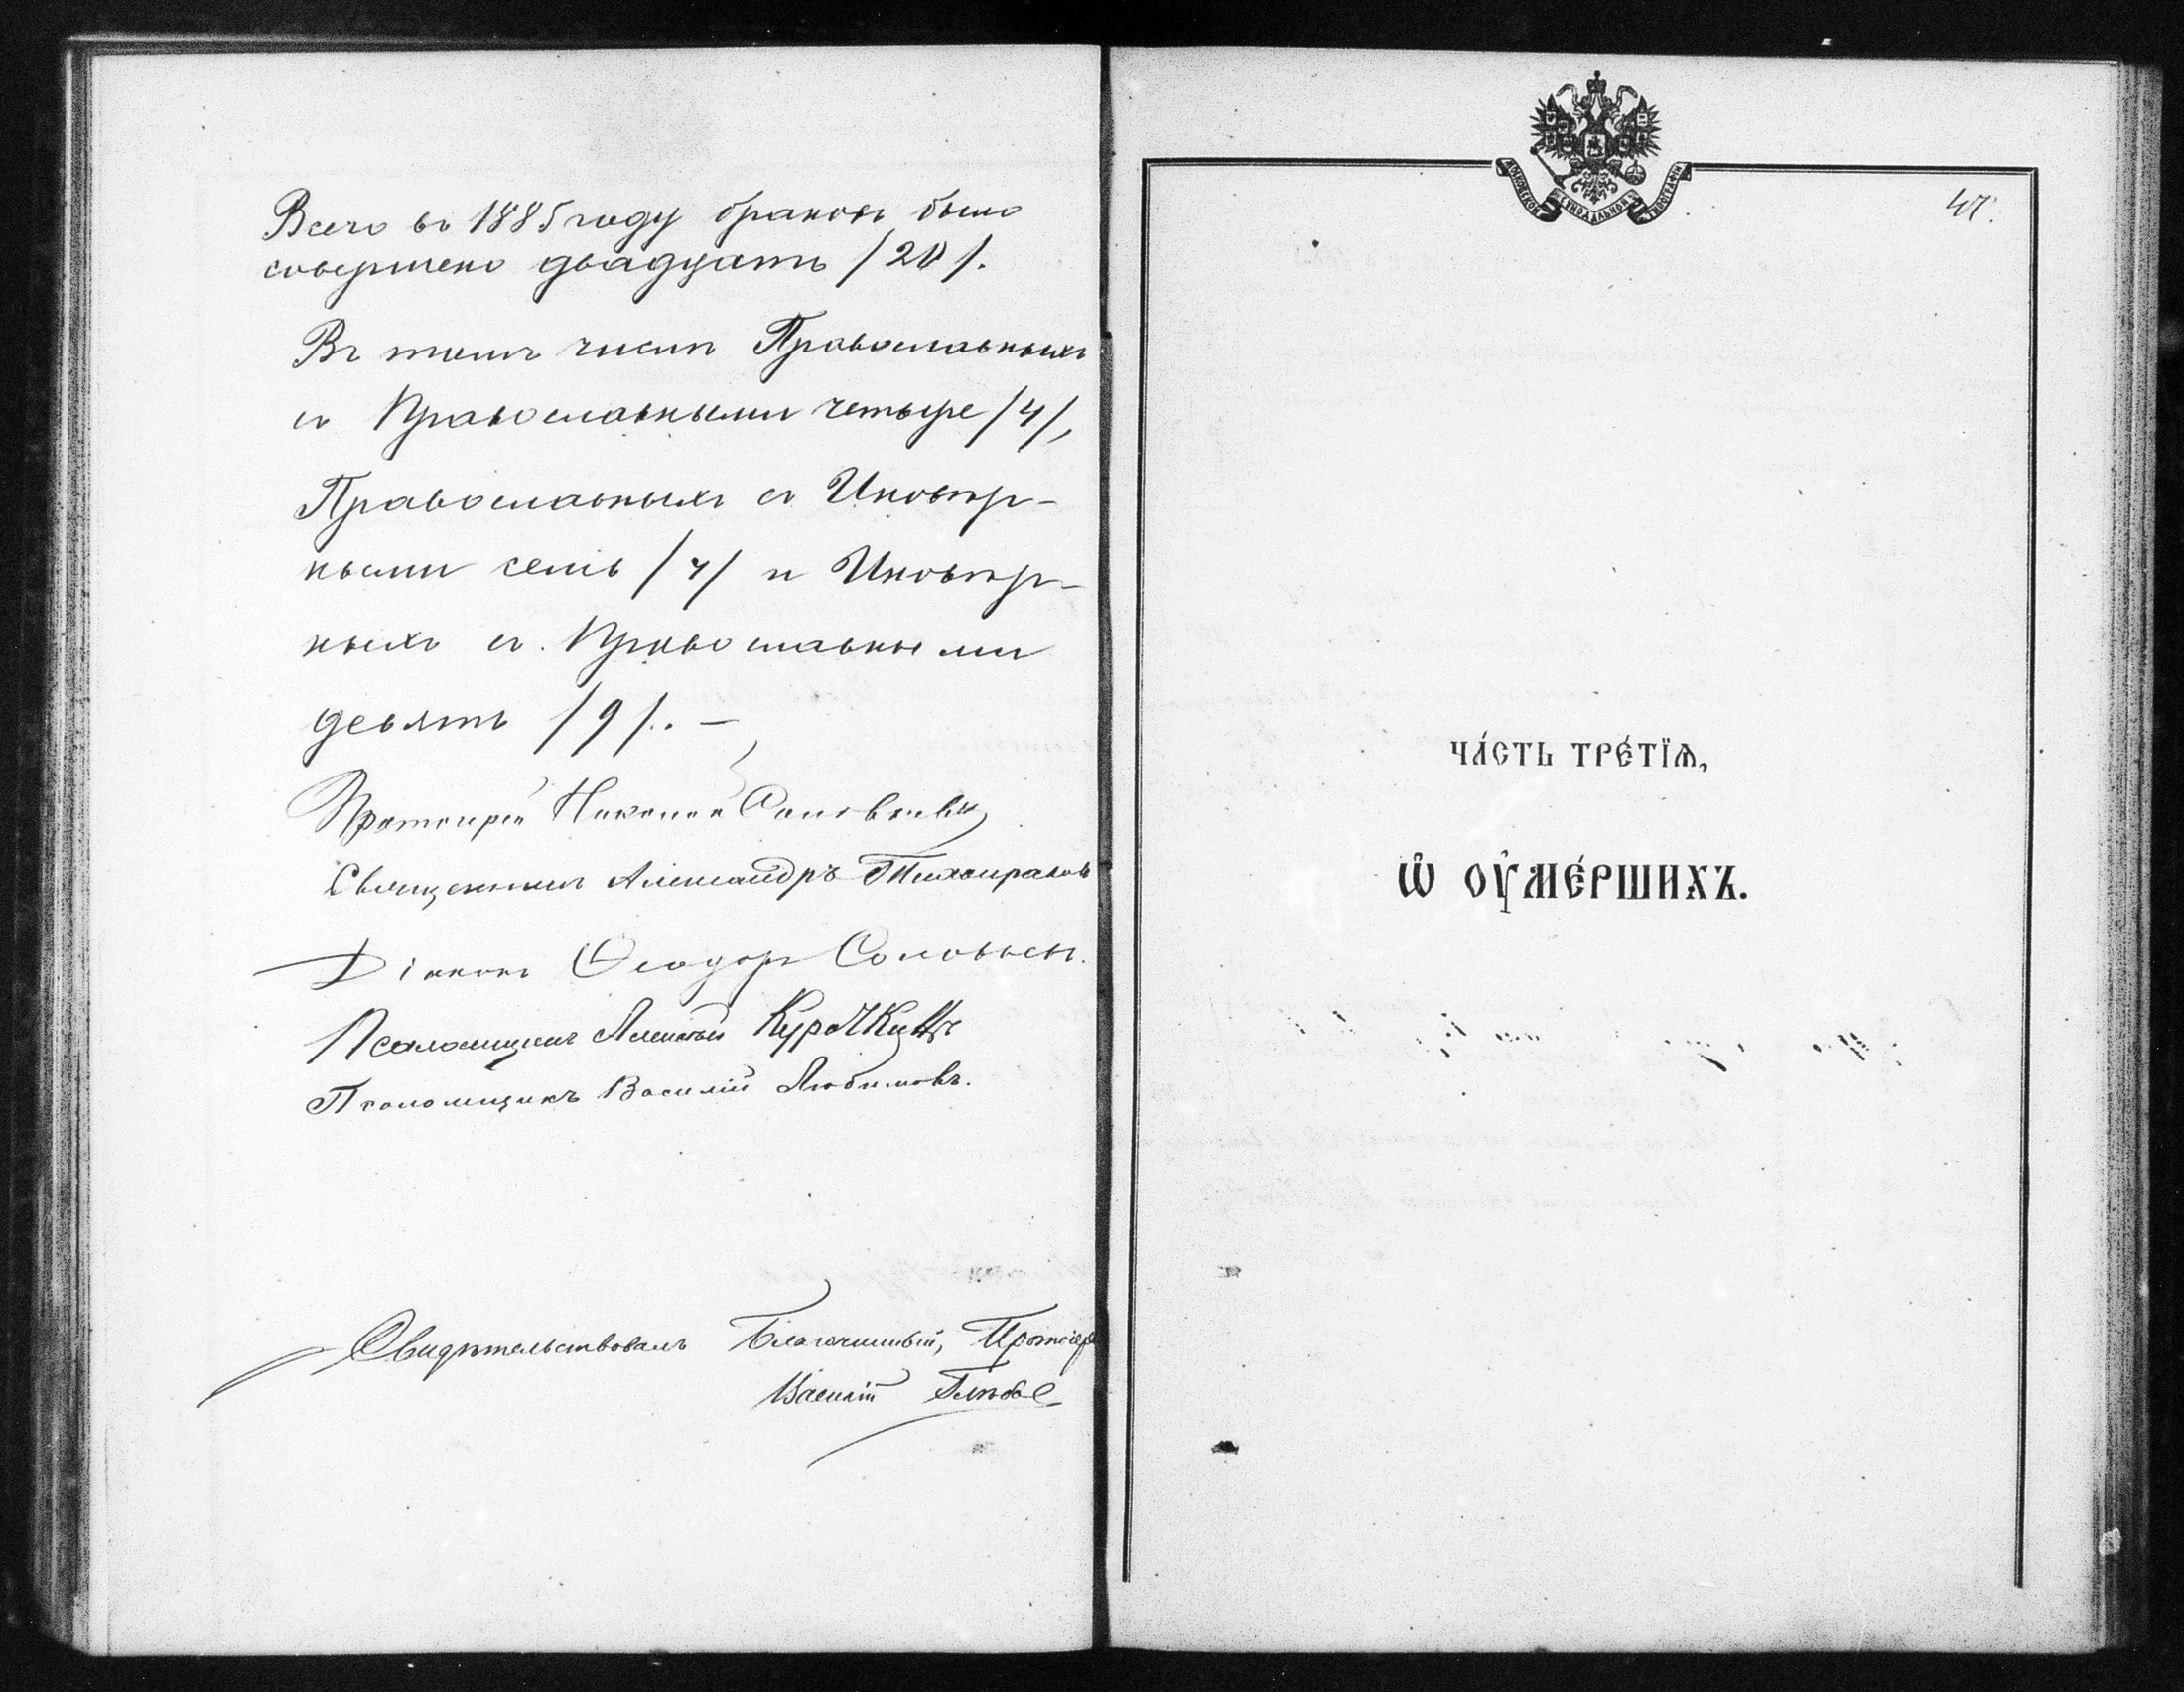 Всего въ 1885 году браковъ было
совершено двадцать /20/.
Въ томъ числѣ Православныхъ
съ Православными четыре /4/,
Православныхъ съ Иновѣр-
ными семь /7/ и Иновѣр-
ныхъ съ Православными
девять /9/. —
Протоіерей Николай Соловьевъ
Священникъ Александръ Тихомировъ
Діаконъ Ѳеодоръ Соловьевъ.
Псаломщикъ Алексѣй Курочкинъ
Псаломщикъ Василій Любимовъ.
Свидѣтельствовалъ Благочинный, Протоіере
Василій
МОСКОВСКОЙ СѴНОДАЛЬНОЙ ТИПОГРАФІИ
47.
ЧА́СТЬ ТРЕ́ТЇѦ,
Ѡ҆ ОУ҆МЕ́РШИХЪ.